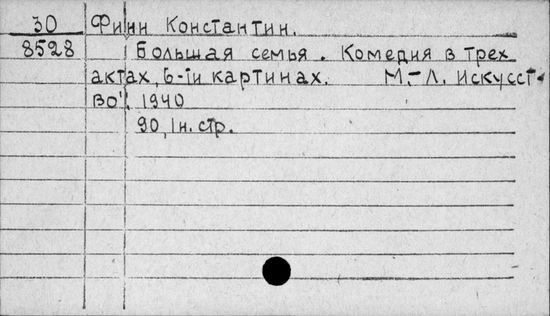 30 Финн Константин.
8528 Большая семья. Комедия в трех
актах, 6-ти картинах. М.-Л. Искусст-
во". 1940
90, 1н. стр.